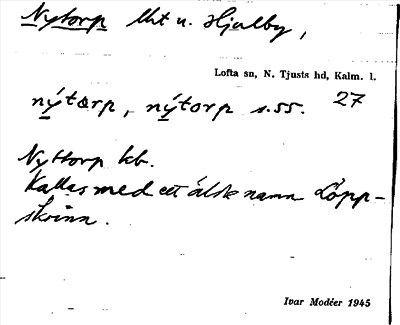 Nytorp lht u. Hjulby,
Lofta sn, N. Tjusts hd, Kalm. l.
nýtorp, nýtorp s.55. 27
Nyttorp kb.
Kallas med ett äldre namn Löpp-
skinn.
Ivar Modéer 1945